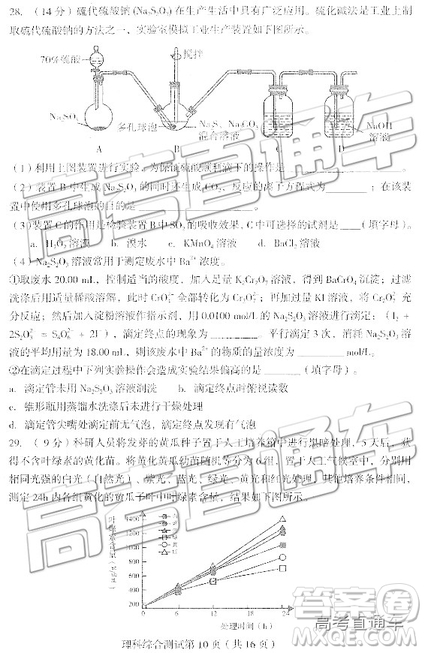 28. （14分）硫代硫酸钠(Na₂S₂O₃)在生产生活中具有广泛应用。硫化碱法是工业上制
取硫代硫酸钠的方法之一，实验室模拟工业生产装置如下图所示。
70%硫酸
搅拌
Na₂SO₃
多孔球泡
Na₂S、Na₂CO₃
混合溶液
NaOH
溶液
A
B
C
D
（1）利用上图装置进行实验，为保证硫酸顺利滴下的操作是
（2）装置B中生成Na₂S₂O₃的同时还生成CO₂，反应的离子方程式为________；在该装
置中使用多孔球泡的目的是________。
（3）装置C的作用是检验装置B中SO₂的吸收效果，C中可选择的试剂是____(填字母)。
a. H₂O₂溶液 b. 溴水 c. KMnO₄溶液 d. BaCl₂溶液
（4）Na₂S₂O₃溶液常用于测定废水中Ba²⁺浓度。
①取废水20.00 mL，控制适当的酸度，加入足量K₂Cr₂O₇溶液，得到BaCrO₄沉淀；过滤
洗涤后用适量稀盐酸溶解，此时CrO₄²⁻全部转化为Cr₂O₇²⁻；再加过量KI溶液，将Cr₂O₇²⁻充
分反应；然后加入淀粉溶液作指示剂，用0.0100 mol/L的Na₂S₂O₃溶液进行滴定：(I₂ +
2S₂O₃²⁻ = S₄O₆²⁻ + 2I⁻)，滴定终点的现象为________。平行滴定3次，消耗Na₂S₂O₃溶
液的平均用量为18.00 mL，则该废水中Ba²⁺的物质的量浓度为________mol/L。
②在滴定过程中下列实验操作会造成实验结果偏高的是________(填字母)。
a. 滴定管未用Na₂S₂O₃溶液润洗 b. 滴定终点时俯视读数
c. 锥形瓶用蒸馏水洗涤后未进行干燥处理
d. 滴定管尖嘴处滴定前无气泡，滴定终点发现有气泡
29. （9分）科研人员将发芽的黄瓜种子置于人工培养箱中进行黑暗处理，5天后，获
得不含叶绿素的黄化苗。将黄化黄瓜幼苗随机等分为6组，置于人工气候室中，分别用
相同强度的白光（自然光）、紫光、蓝光、绿光、黄光和红光处理，其他培养条件相同，
测定24h内各组黄化的黄瓜子叶中叶绿素含量，结果如下图所示。
1400
1200
1000
800
600
400
200
0
6
12
18
24
处理时间（h）
理科综合测试第10页（共16页）
高考直通车
高考直通车
高考直通车
高考直通车